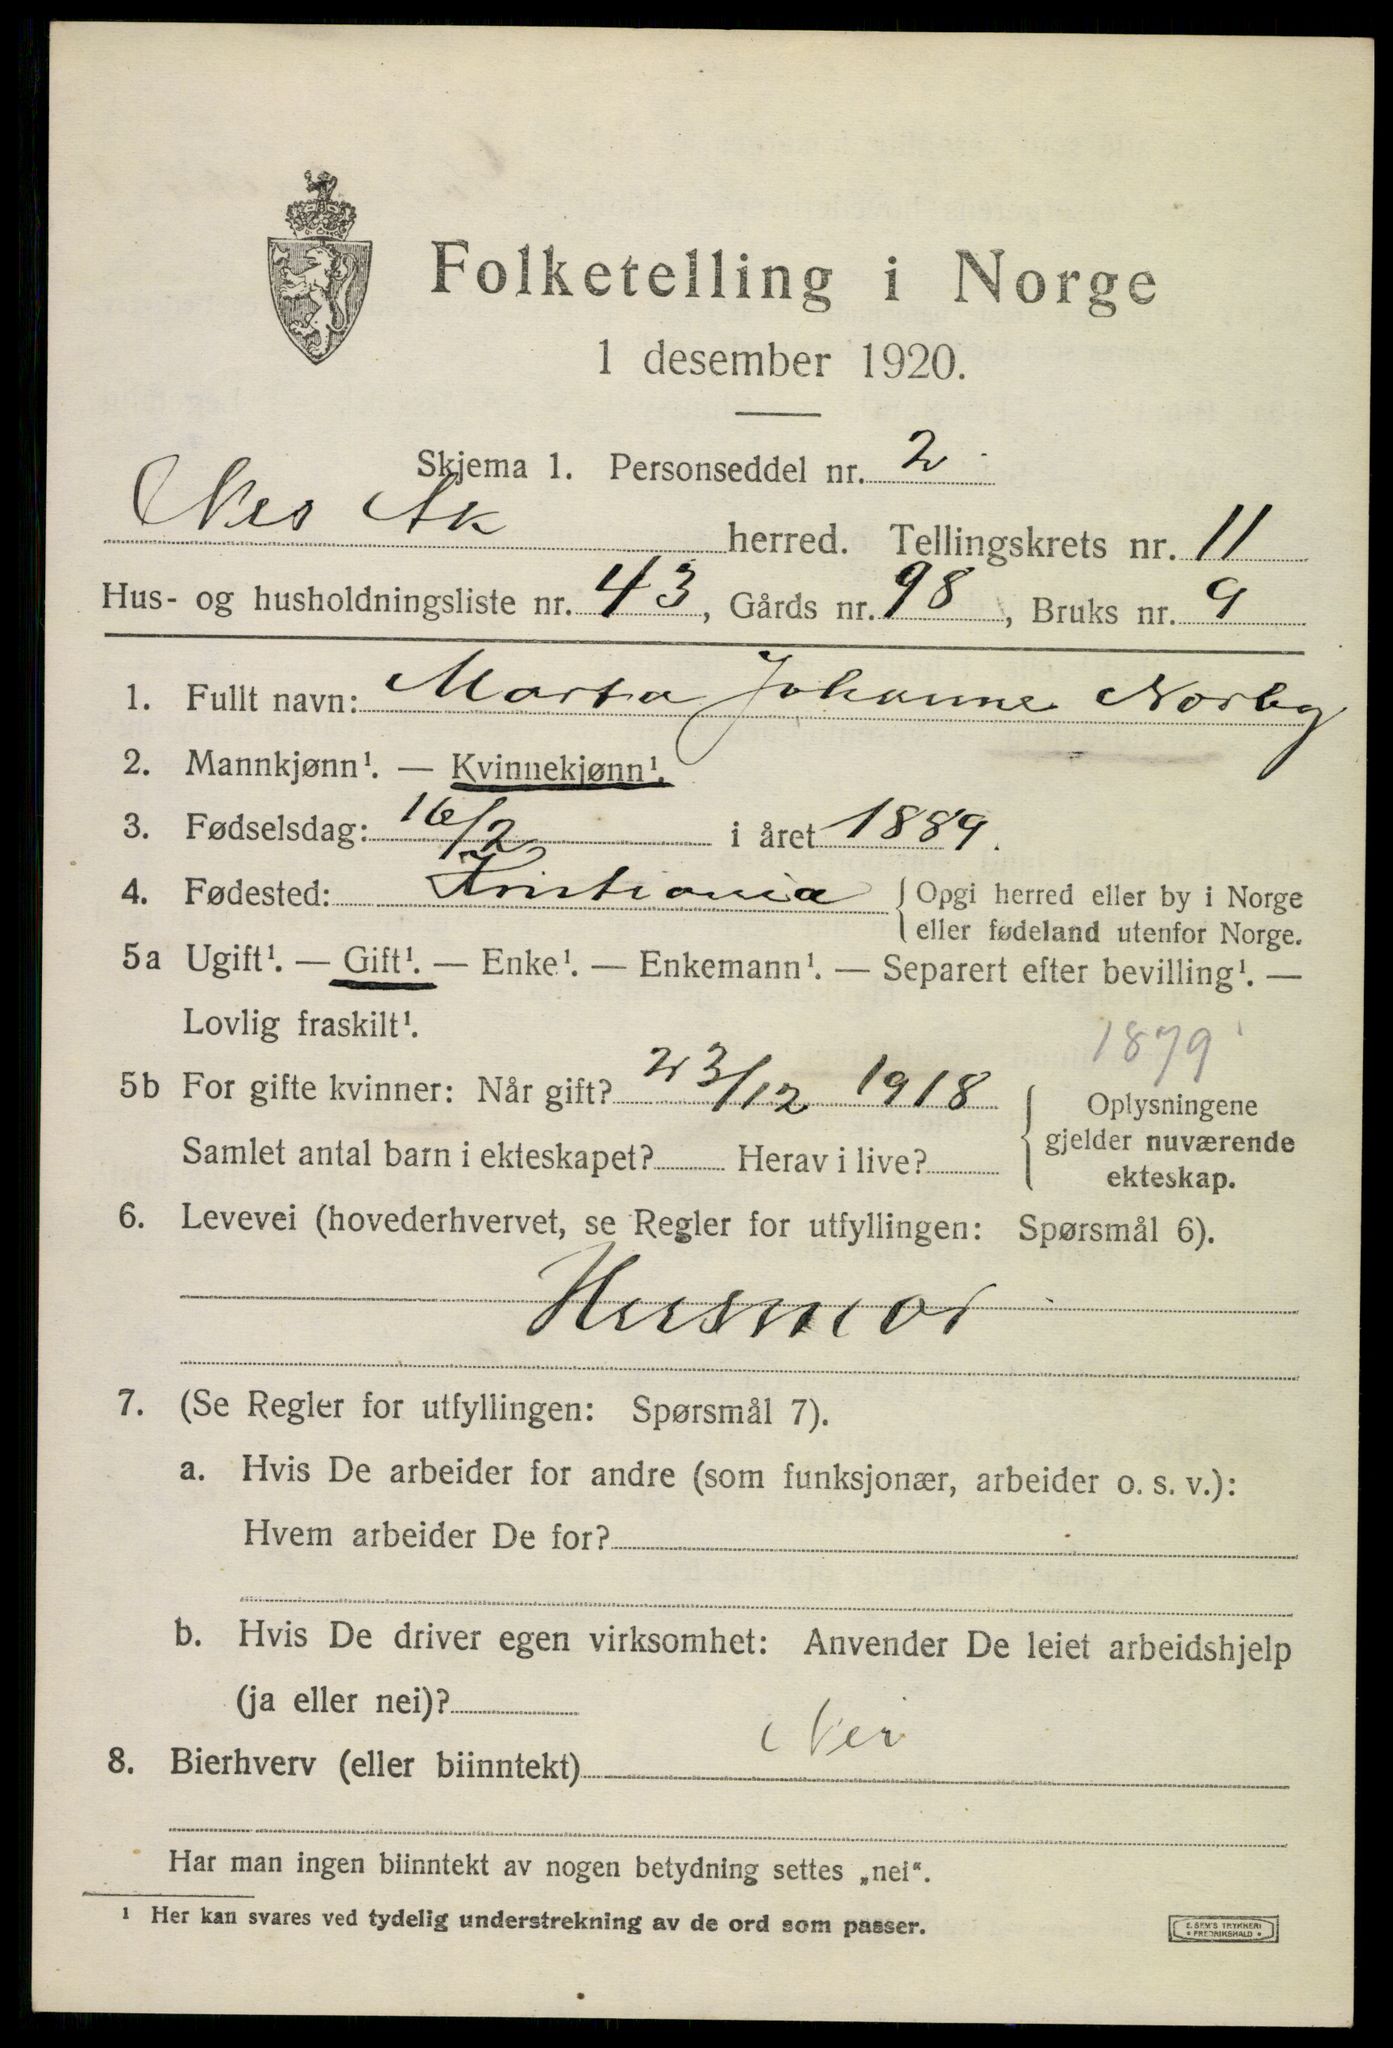 Folketelling i Norge
1 desember 1920.
Skjema 1. Personseddel nr. 2
Nes Ak herred. Tellingskrets nr. 11
Hus- og husholdningsliste nr. 43, Gårds nr. 98, Bruks nr. 9
1. Fullt navn: Marta Johanne Norby
2. Mannkjønn¹. — Kvinnekjønn¹.
3. Fødselsdag: 16/2 i året 1889.
4. Fødested: Kristiania { Opgi herred eller by i Norge
eller fødeland utenfor Norge.
5a Ugift¹. — Gift¹. — Enke¹. — Enkemann¹. — Separert efter bevilling¹. —
Lovlig fraskilt¹.
1879
5b For gifte kvinner: Når gift? 23/12 1918
Samlet antal barn i ekteskapet? Herav i live?
{ Oplysningene
gjelder nuværende
ekteskap.
6. Levevei (hovederhvervet, se Regler for utfyllingen: Spørsmål 6).
Husmor
7. (Se Regler for utfyllingen: Spørsmål 7).
a. Hvis De arbeider for andre (som funksjonær, arbeider o. s. v.):
Hvem arbeider De for?
b. Hvis De driver egen virksomhet: Anvender De leiet arbeidshjelp
(ja eller nei)?
8. Bierhverv (eller biinntekt) Nei
Har man ingen biinntekt av nogen betydning settes „nei“.
¹ Her kan svares ved tydelig understrekning av de ord som passer.
E. SEM'S TRYKKERI
* FREDRIKSHALD *